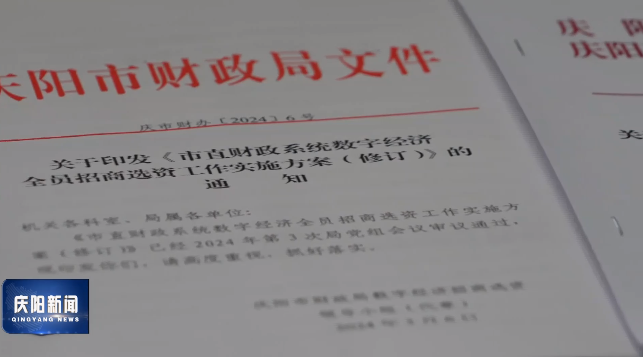 庆阳市财政局文件
庆市财办〔2024〕6号
关于印发《市直财政系统数字经济
全员招商选资工作实施方案（修订）》的
通 知
机关各科室、局属各单位：
《市直财政系统数字经济全员招商选资工作实施方
案（修订）》已经2024年第3次局党组会议审议通过，
现印发你们，请高度重视，抓好落实。
庆阳市财政局数字经济招商选资
领导小组（代章）
2024年3月6日
庆阳
关
庆阳新闻
QINGYANG NEWS